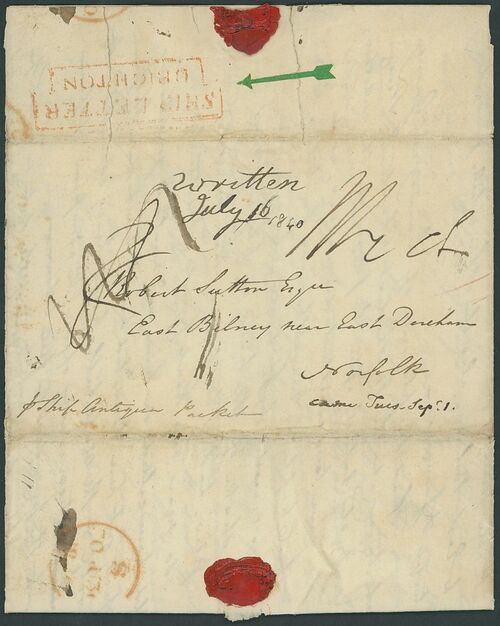 SHIP LETTER
BRIGHTON
written
July 16 1840
Robert Sutton Esqre
East Bilney near East Dereham
Norfolk
came Tues. Sept. 1.
p Ship Antigua Packet